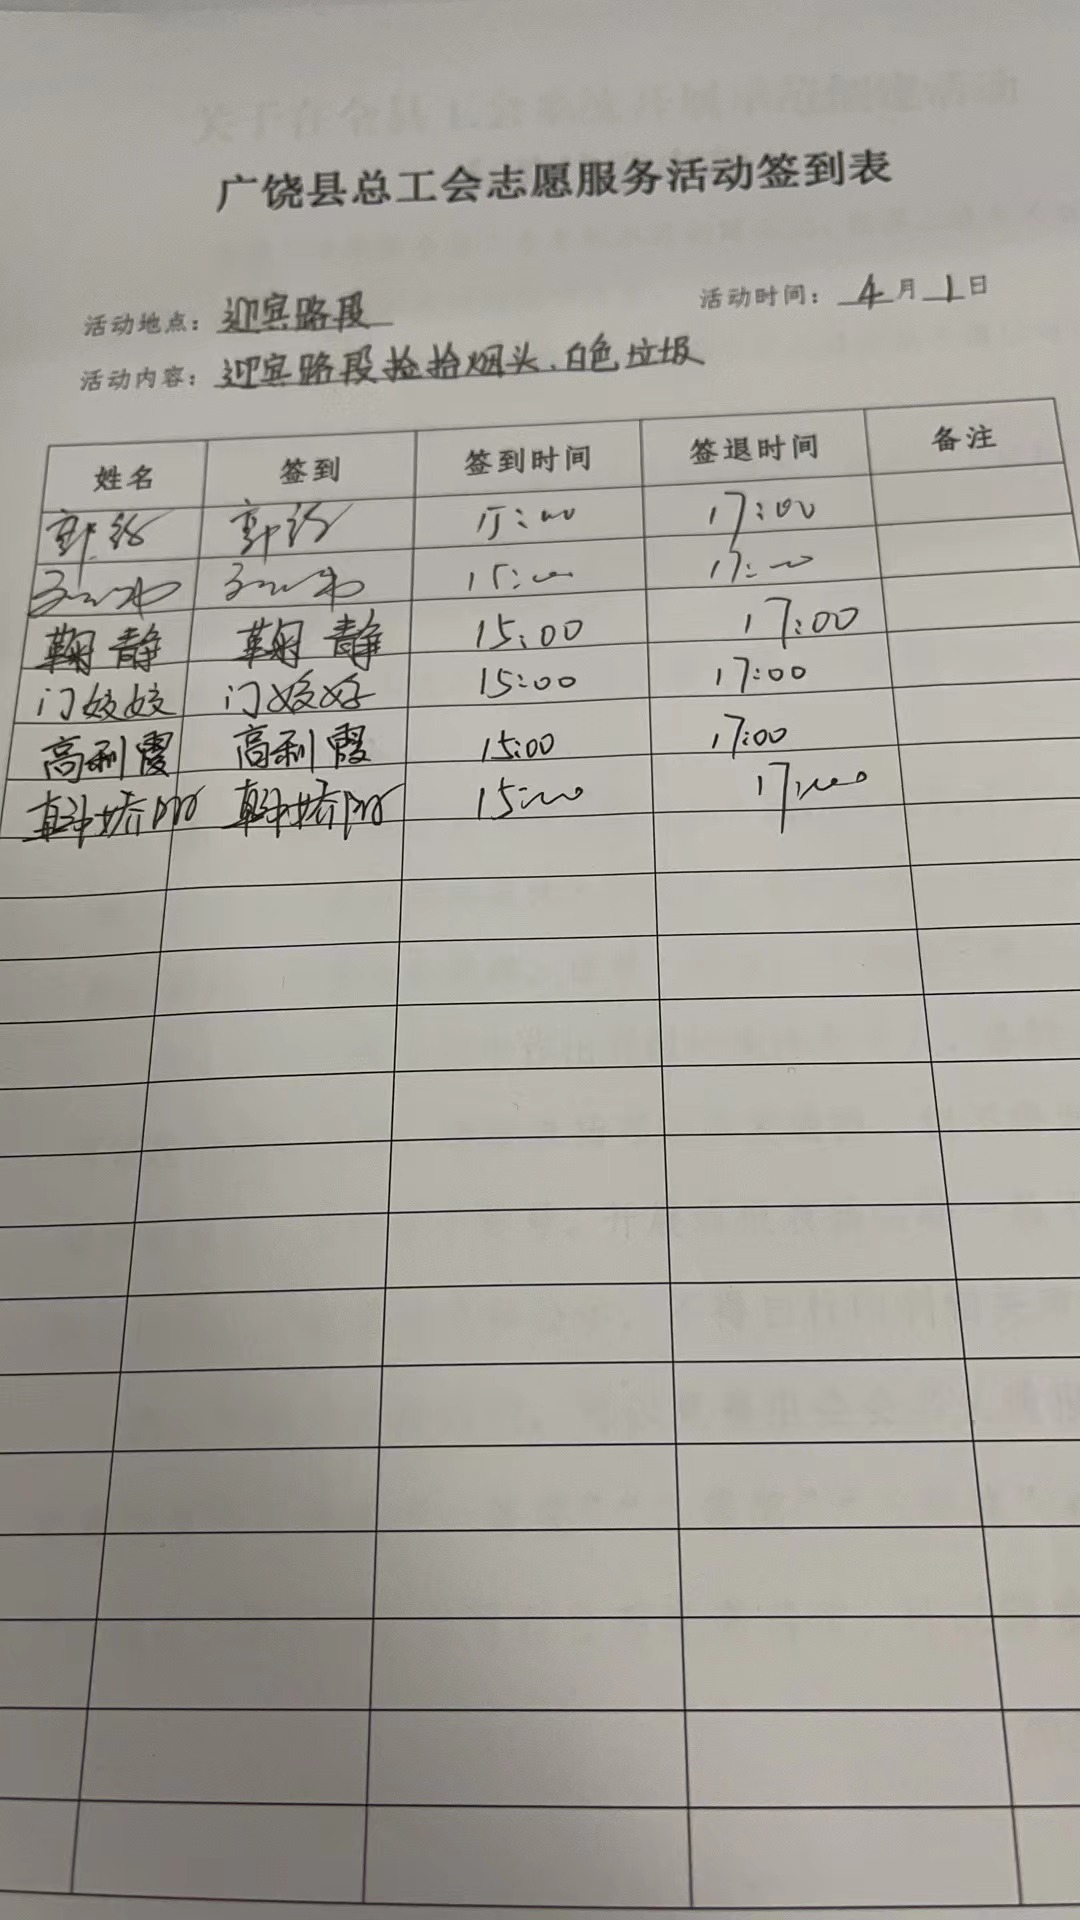 广饶县总工会志愿服务活动签到表
活动地点：迎宾路段 活动时间：4月1日
活动内容：迎宾路段捡拾烟头、白色垃圾
姓名 签到 签到时间 签退时间 备注
15:00 17:00
15:00 17:00
鞠静 鞠静 15:00 17:00
门姣姣 门姣姣 15:00 17:00
高利霞 高利霞 15:00 17:00
韩娇阳 韩娇阳 15:00 17:00